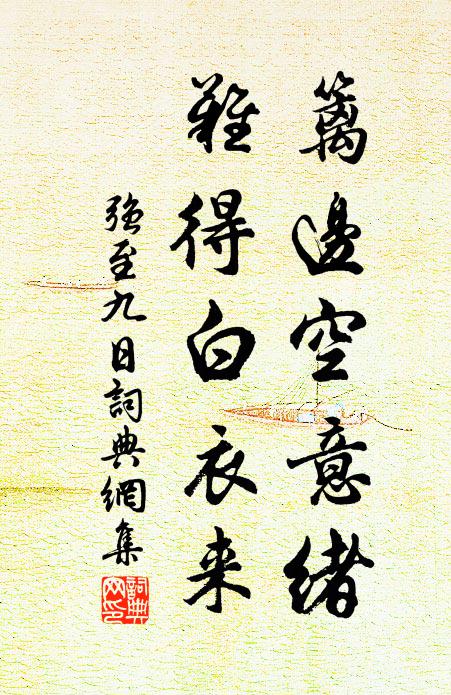 籬邊空意緒
難得白衣来
強至九日詞典網集
詞典网印